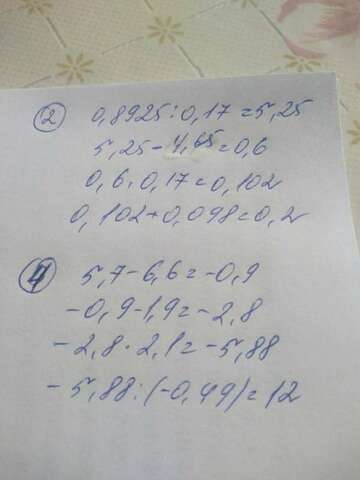 2 0,8925:0,17=5,25
5,25-4,65=0,6
0,6·0,17=0,102
0,102+0,098=0,2
4 5,7-6,6=-0,9
-0,9-1,9=-2,8
-2,8·2,1=-5,88
-5,88:(-0,49)=12